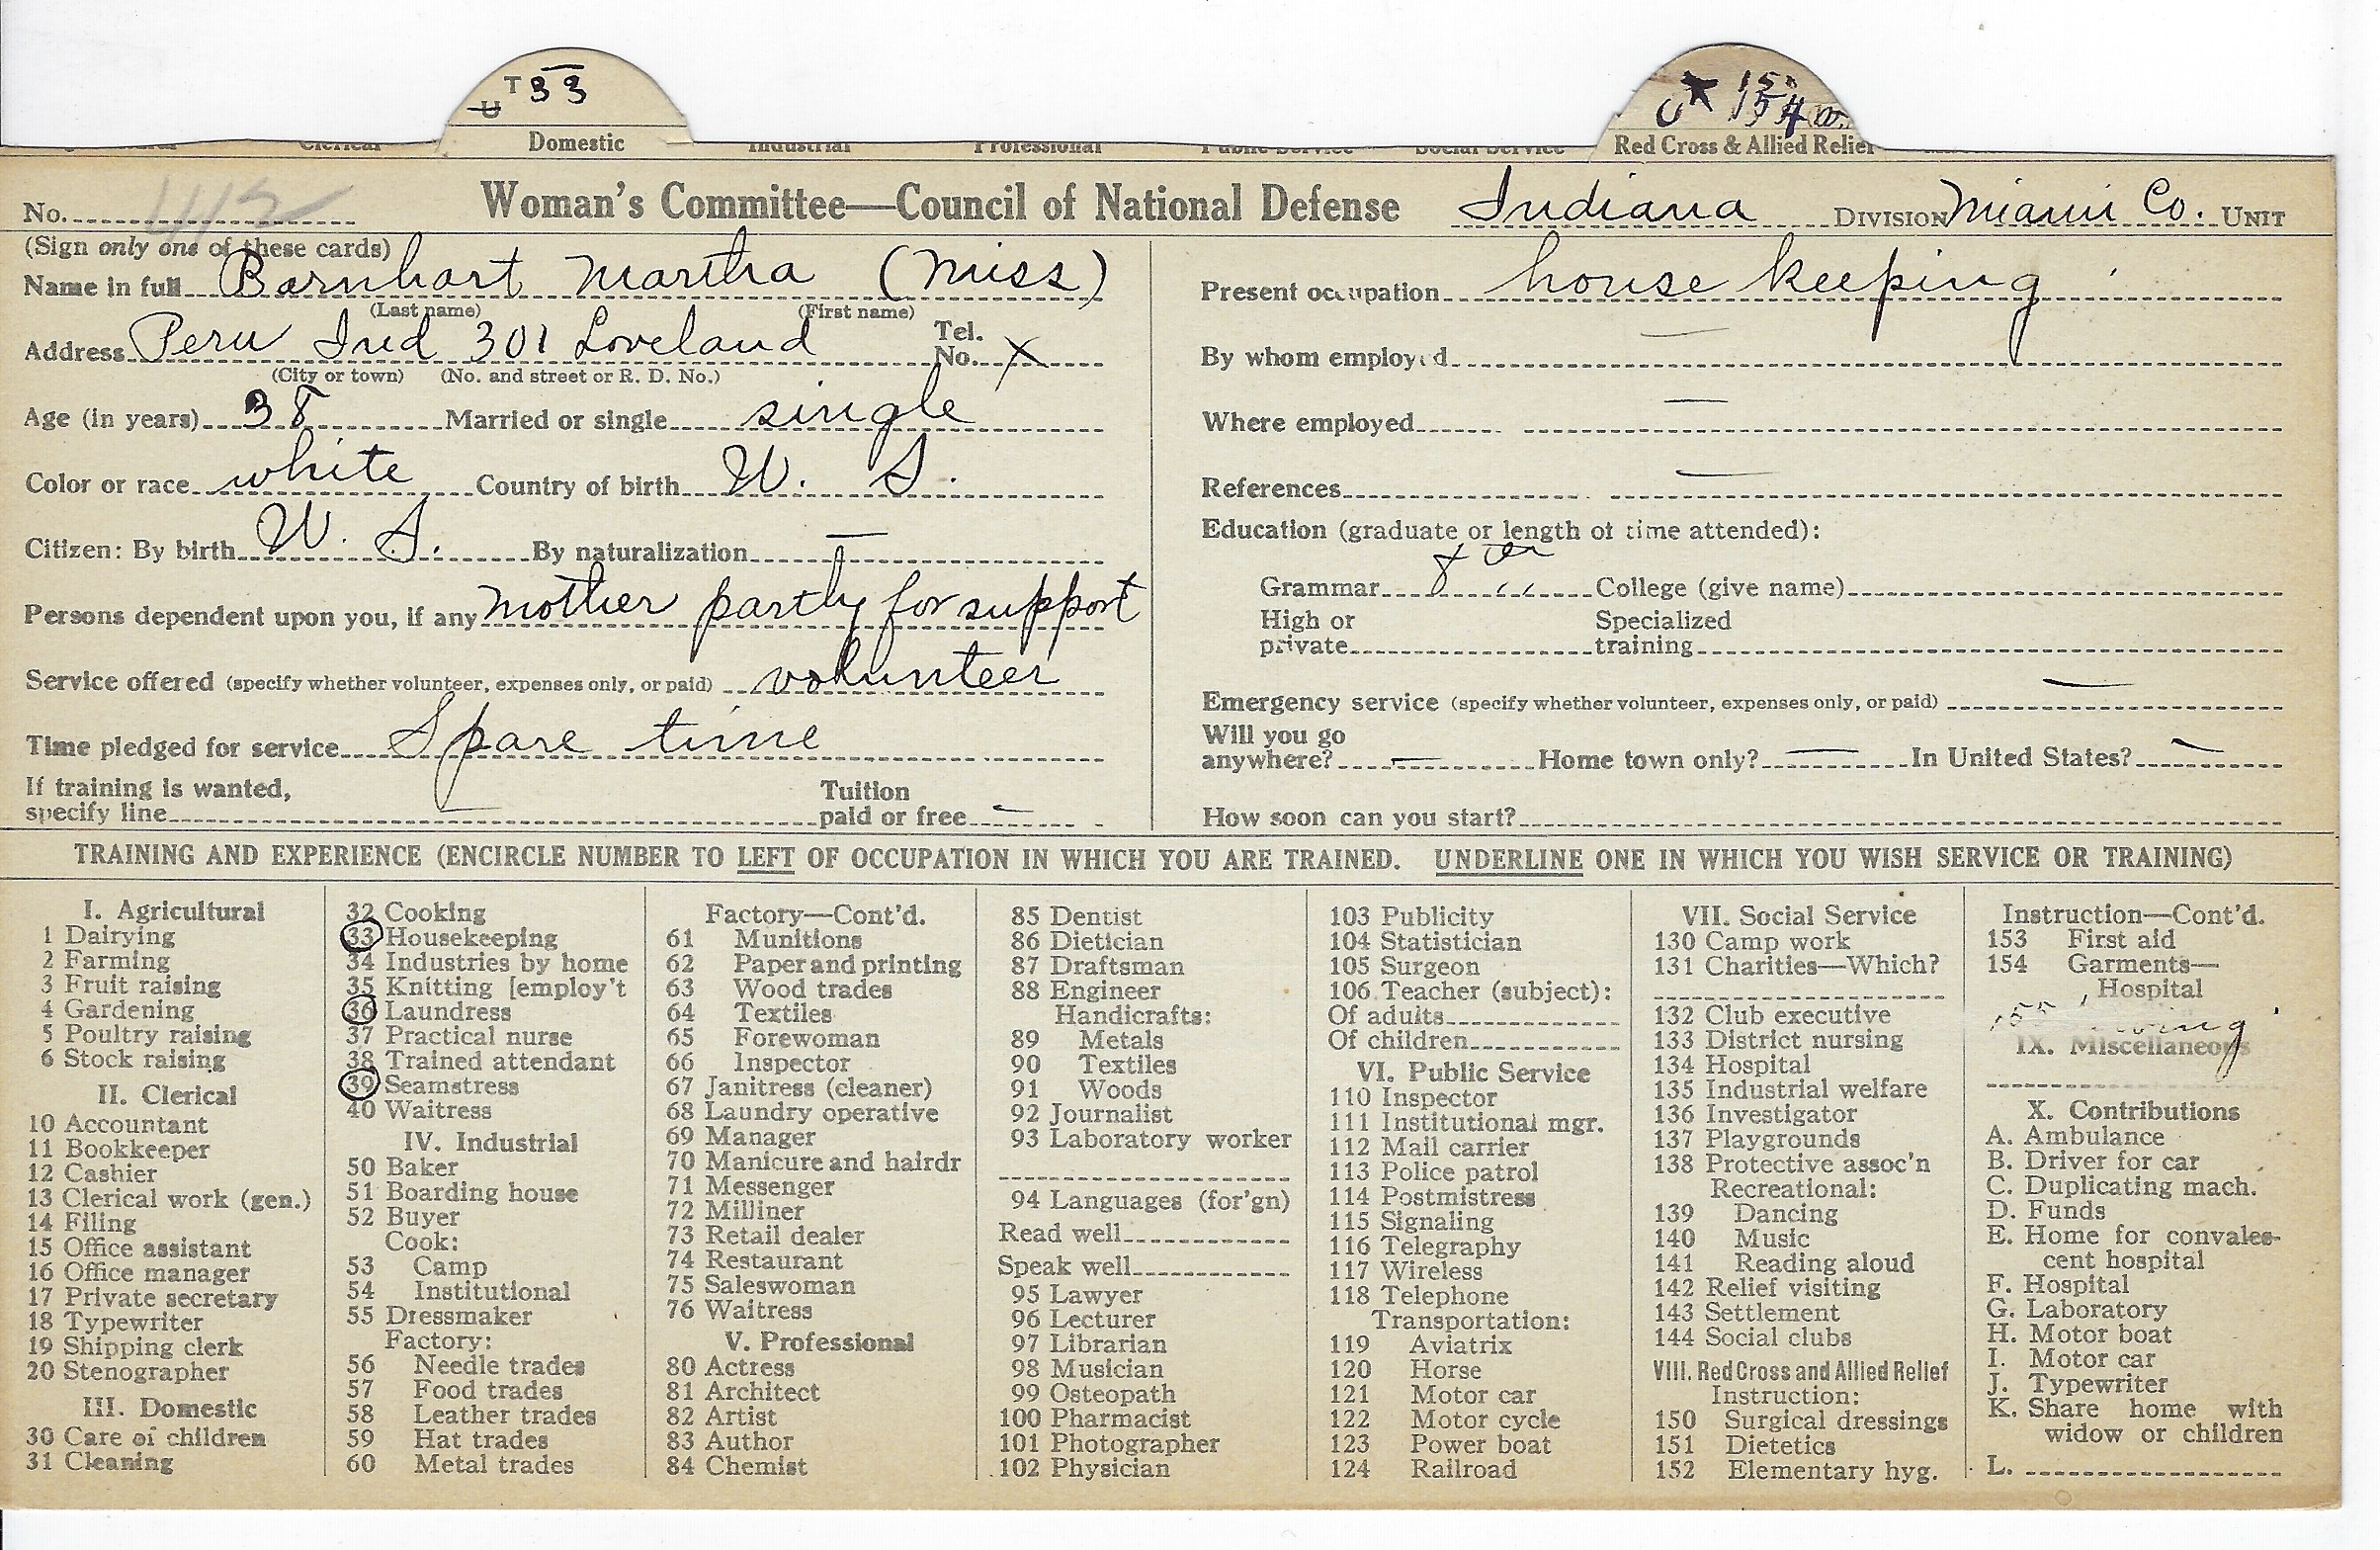 T 33
U
Domestic
Red Cross & Allied Relief
154
No. 
Woman's Committee—Council of National Defense Indiana DIVISION Miami Co. UNIT
(Sign only one of these cards)
Name in full Barnhart Martha (Miss)
(Last name) (First name)
Address Peru Ind 301 Loveland Tel. No. X
(City or town) (No. and street or R. D. No.)
Age (in years) 38 Married or single single
Color or race white Country of birth U. S.
Citizen: By birth U. S. By naturalization —
Persons dependent upon you, if any mother partly for support
Service offered (specify whether volunteer, expenses only, or paid) volunteer
Time pledged for service Spare time
If training is wanted, specify line
Tuition paid or free —
Present occupation house keeping
By whom employed —
Where employed —
References —
Education (graduate or length of time attended):
Grammar 8 College (give name)
High or private
Specialized training
Emergency service (specify whether volunteer, expenses only, or paid) —
Will you go anywhere? — Home town only? — In United States? —
How soon can you start?
TRAINING AND EXPERIENCE (ENCIRCLE NUMBER TO LEFT OF OCCUPATION IN WHICH YOU ARE TRAINED. UNDERLINE ONE IN WHICH YOU WISH SERVICE OR TRAINING)
I. Agricultural
1 Dairying
2 Farming
3 Fruit raising
4 Gardening
5 Poultry raising
6 Stock raising
II. Clerical
10 Accountant
11 Bookkeeper
12 Cashier
13 Clerical work (gen.)
14 Filing
15 Office assistant
16 Office manager
17 Private secretary
18 Typewriter
19 Shipping clerk
20 Stenographer
III. Domestic
30 Care of children
31 Cleaning
32 Cooking
33 Housekeeping
34 Industries by home
35 Knitting [employ't
36 Laundress
37 Practical nurse
38 Trained attendant
39 Seamstress
40 Waitress
IV. Industrial
50 Baker
51 Boarding house
52 Buyer
Cook:
53 Camp
54 Institutional
55 Dressmaker
Factory:
56 Needle trades
57 Food trades
58 Leather trades
59 Hat trades
60 Metal trades
Factory—Cont'd.
61 Munitions
62 Paper and printing
63 Wood trades
64 Textiles
65 Forewoman
66 Inspector
67 Janitress (cleaner)
68 Laundry operative
69 Manager
70 Manicure and hairdr
71 Messenger
72 Milliner
73 Retail dealer
74 Restaurant
75 Saleswoman
76 Waitress
V. Professional
80 Actress
81 Architect
82 Artist
83 Author
84 Chemist
85 Dentist
86 Dietician
87 Draftsman
88 Engineer
Handicrafts:
89 Metals
90 Textiles
91 Woods
92 Journalist
93 Laboratory worker
94 Languages (for'gn)
Read well
Speak well
95 Lawyer
96 Lecturer
97 Librarian
98 Musician
99 Osteopath
100 Pharmacist
101 Photographer
102 Physician
103 Publicity
104 Statistician
105 Surgeon
106 Teacher (subject):
Of adults
Of children
VI. Public Service
110 Inspector
111 Institutional mgr.
112 Mail carrier
113 Police patrol
114 Postmistress
115 Signaling
116 Telegraphy
117 Wireless
118 Telephone
Transportation:
119 Aviatrix
120 Horse
121 Motor car
122 Motor cycle
123 Power boat
124 Railroad
VII. Social Service
130 Camp work
131 Charities—Which?
132 Club executive
133 District nursing
134 Hospital
135 Industrial welfare
136 Investigator
137 Playgrounds
138 Protective assoc'n
Recreational:
139 Dancing
140 Music
141 Reading aloud
142 Relief visiting
143 Settlement
144 Social clubs
VIII. Red Cross and Allied Relief
Instruction:
150 Surgical dressings
151 Dietetics
152 Elementary hyg.
Instruction—Cont'd.
153 First aid
154 Garments—
Hospital
155
IX. Miscellaneous
X. Contributions
A. Ambulance
B. Driver for car
C. Duplicating mach.
D. Funds
E. Home for convales-
cent hospital
F. Hospital
G. Laboratory
H. Motor boat
I. Motor car
J. Typewriter
K. Share home with
widow or children
L.